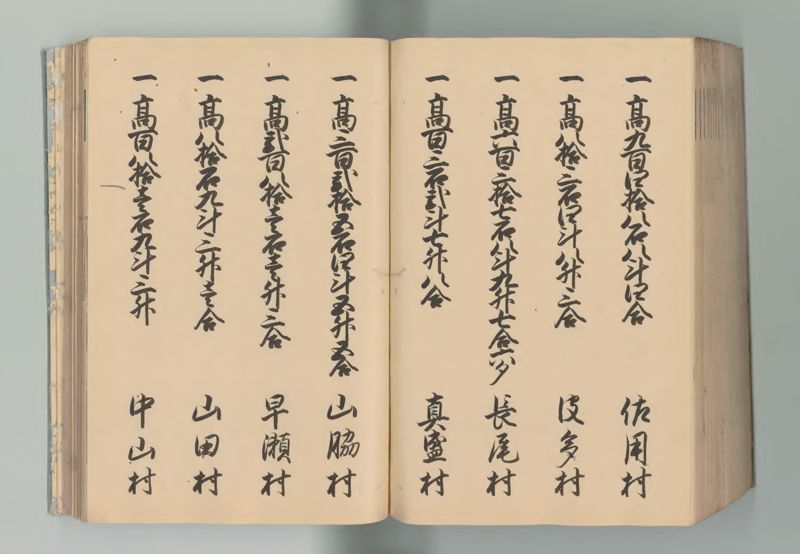 一 高九百四拾八石八斗四合 佐用村
一 高八拾三石四斗八升三合 皮多村
一 高六百三拾七石八斗九升七合六夕 長尾村
一 高百三石弐斗七升八合 真盛村
一 高三百弐拾五石四斗五升五合 山脇村
一 高弐百八拾壱石壱斗三合 早瀬村
一 高八拾石九斗三升壱合 山田村
一 高百八拾壱石九斗三升 中山村